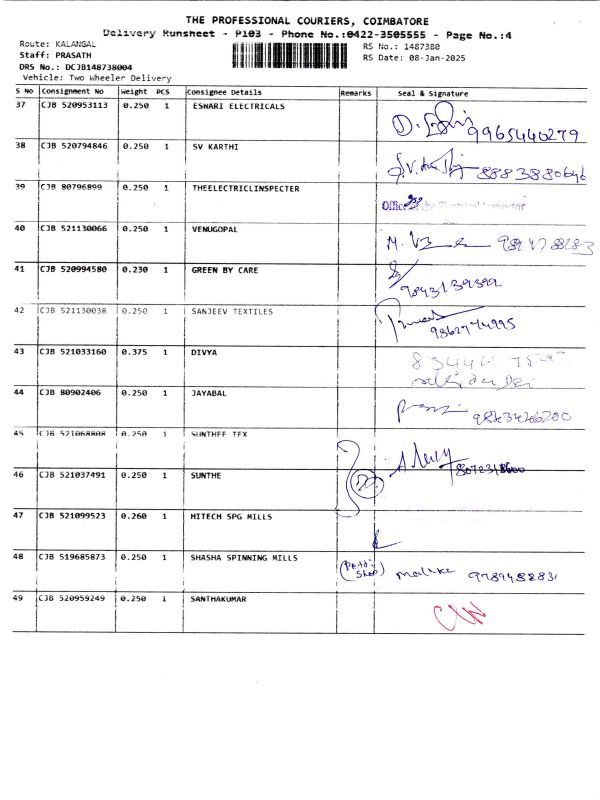 THE PROFESSIONAL COURIERS, COIMBATORE
Delivery Runsheet - P103 - Phone No.:0422-3505555 - Page No.:4
Route: KALANGAL
Staff: PRASATH
DRS No.: DCJB148738004
Vehicle: Two Wheeler Delivery
RS No.: 1487380
RS Date: 08-Jan-2025
S No Consignment No Weight PCS Consignee Details Remarks Seal & Signature
37 CJB 520953113 0.250 1 ESWARI ELECTRICALS
9965440279
38 CJB 520794846 0.250 1 SV KARTHI
8883880646
39 CJB 80796899 0.250 1 THEELECTRICLINSPECTER
Office the Electrical Inspector
40 CJB 521130066 0.250 1 VENUGOPAL
41 CJB 520994580 0.230 1 GREEN BY CARE
42 CJB 521130038 0.250 1 SANJEEV TEXTILES
9862774995
43 CJB 521033160 0.375 1 DIVYA
44 CJB 80902406 0.250 1 JAYABAL
45 CJB 521068808 0.250 1 SUNTHEE TEX
46 CJB 521037491 0.250 1 SUNTHE
47 CJB 521099523 0.260 1 HITECH SPG MILLS
48 CJB 519685873 0.250 1 SHASHA SPINNING MILLS
9789452831
49 CJB 520959249 0.250 1 SANTHAKUMAR